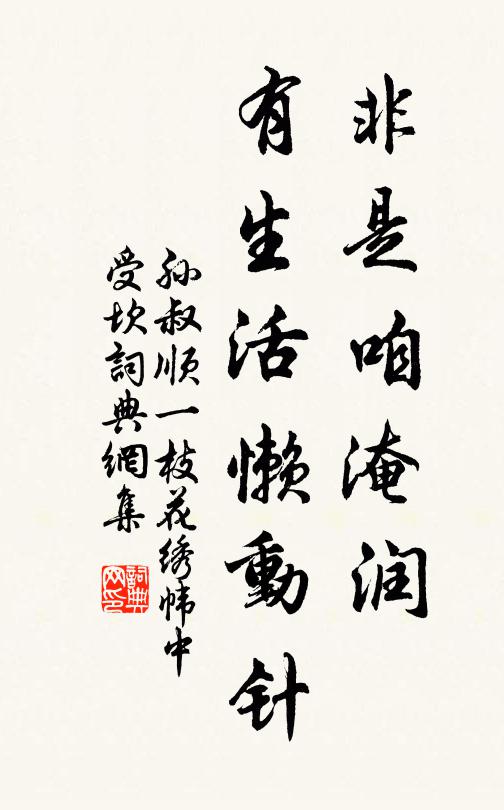 非是咱淹润
有生活懒動针
孙叔顺一枝花绣帏中
受坎詞典網集
詞典网印